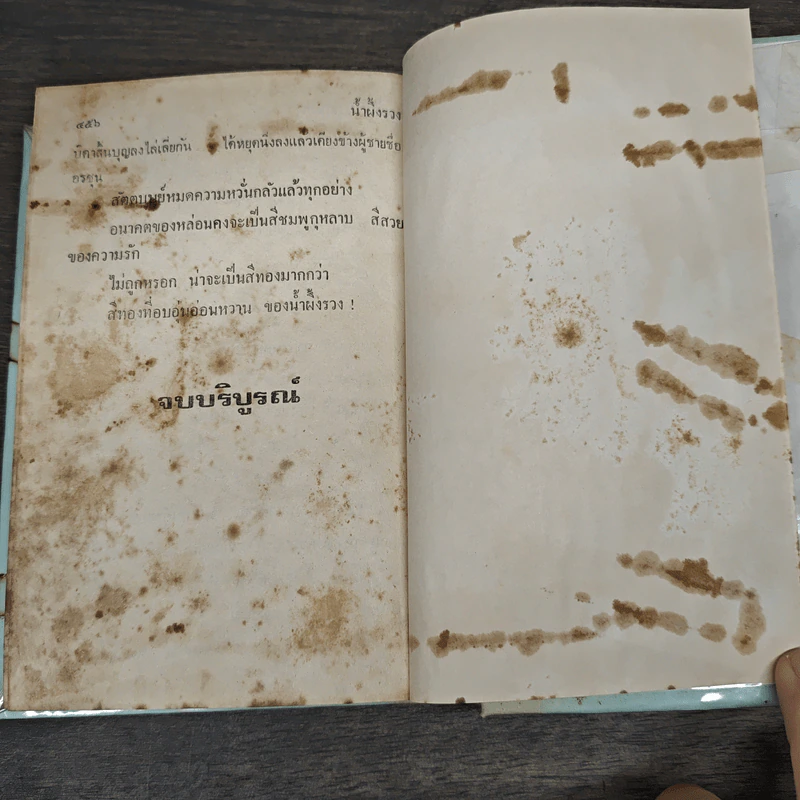 ๔๕๖
น้ำผึ้งรวง
บิดาสิ้นบุญลงไล่เลี่ยกัน ได้หยุดนิ่งลงแล้วเคียงข้างผู้ชายชื่อ
อรชุน
สัตตบุษย์หมดความหวั่นกลัวแล้วทุกอย่าง
อนาคตของหล่อนคงจะเป็นสีชมพูกุหลาบ สีสวย
ของความรัก
ไม่ถูกหรอก น่าจะเป็นสีทองมากกว่า
สีทองที่อบอุ่นอ่อนหวาน ของน้ำผึ้งรวง !
จบบริบูรณ์